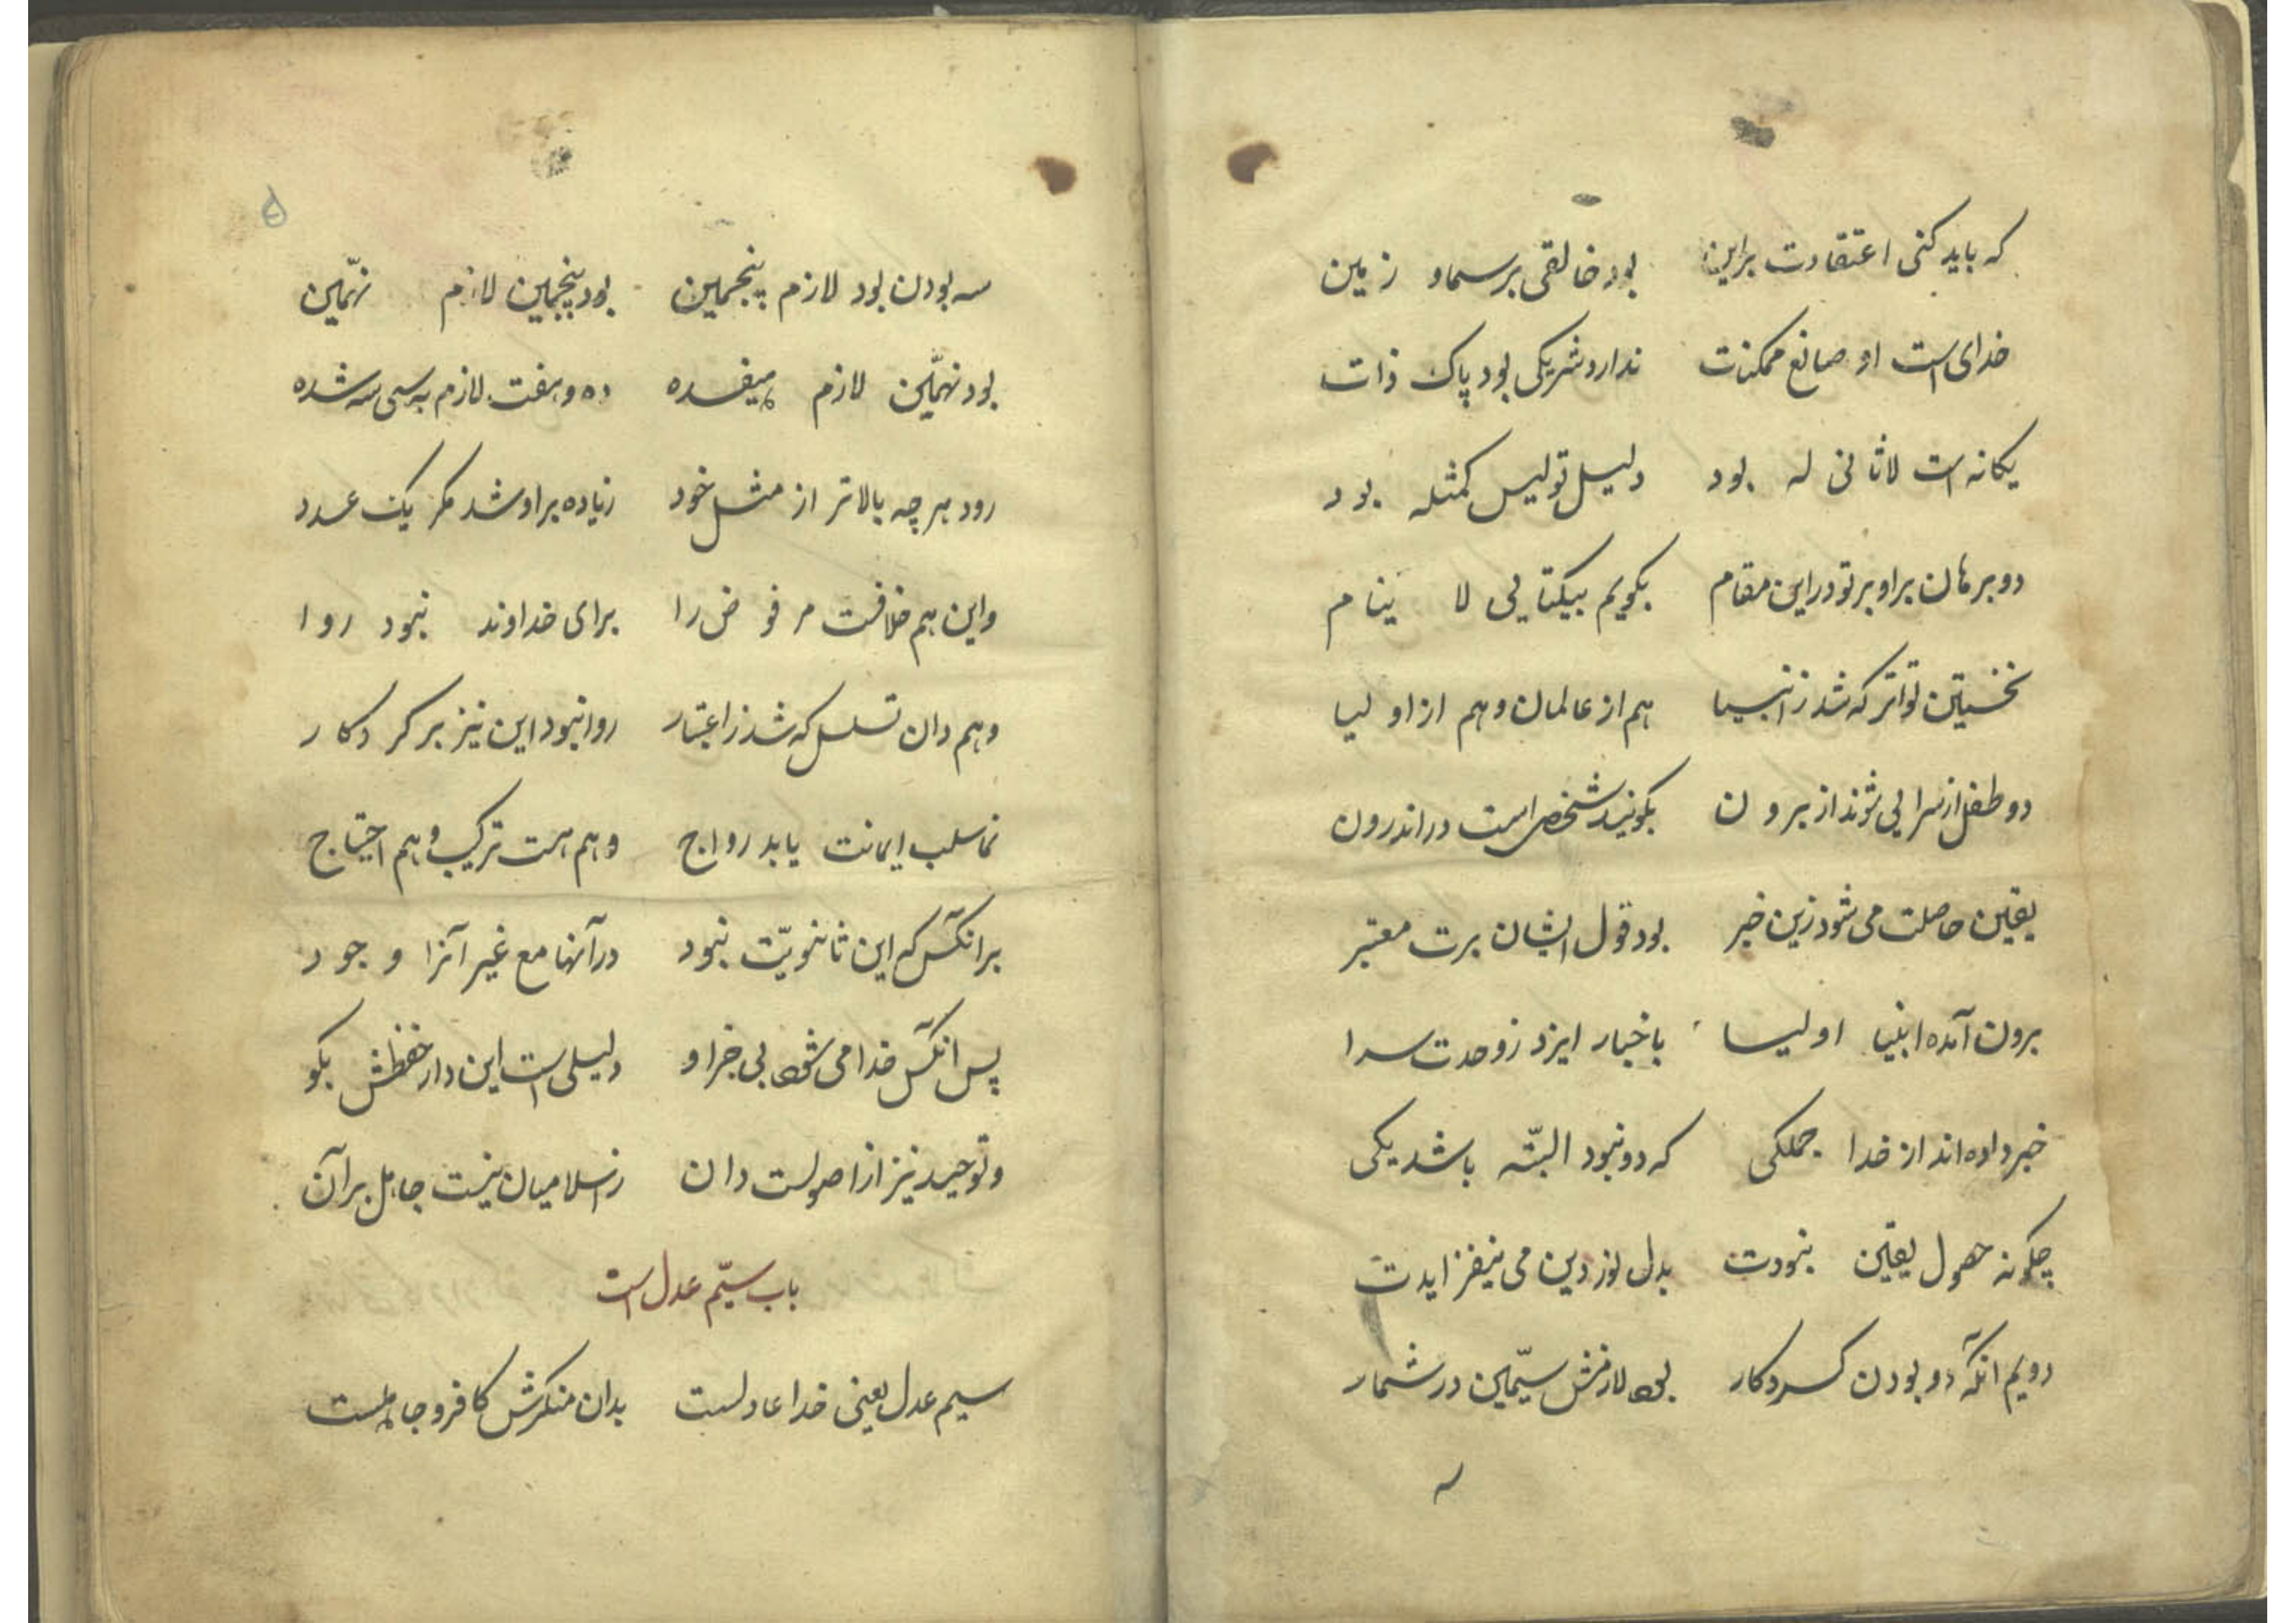 که باید کنی اعتقادت براین بود خالقی بر سما و زمین
خدای است او صانع ممکنات ندارد شریکی بود پاک ذات
یکانه است لاثانی له بود دلیل تو لیس کمثله بود
دو برهان براو بر تو در این مقام بکویم بیکتایی لا ینام
نخستین تواتر که شد ز انبیا هم از عالمان و هم از اولیا
دو طفل از سرایی شوند از برون بکویند شخص است در اندرون
یقین حاصلت می شود زین خبر بود قول ایشان برت معتبر
برون آمده انبیا اولیا باخبار ایزد ز وحدت سرا
خبر داده اند از خدا جملکی که دو نبود البته باشد یکی
چکونه حصول یقین نبودت بدل نور دین می نیفزایدت
دویم انکه دو بودن کردکار بود لازمش سیّمین در شمار
۵
سه بودن بود لازم پنجمین بود پنجمین لازم نهّمین
بود نهّمین لازم هیفده ده و هفت لازم به سی سه شده
رود هرچه بالاتر از مثل خود زیاده براو شد مکر یک عدد
واین هم خلافت مر فرض را برای خداوند نبود روا
وهم دان تسلسل که شد ز اعتبار روا نبود این نیز بر کردکار
ایمانت یابد رواج وهم هست ترکیب وهم احتیاج
برانکس که این ثانویّت نبود در آنها مع غیر آنرا وجود
پس انکس خدا می شود بی جز او دلیلی است این دار حفظش بکو
و توحید نیز از اصولست دان ز اسلامیان نیست جاهل برآن
باب سیّم عدل است
سیم عدل یعنی خدا عادلست بدان منکرش کافر و جاهلست